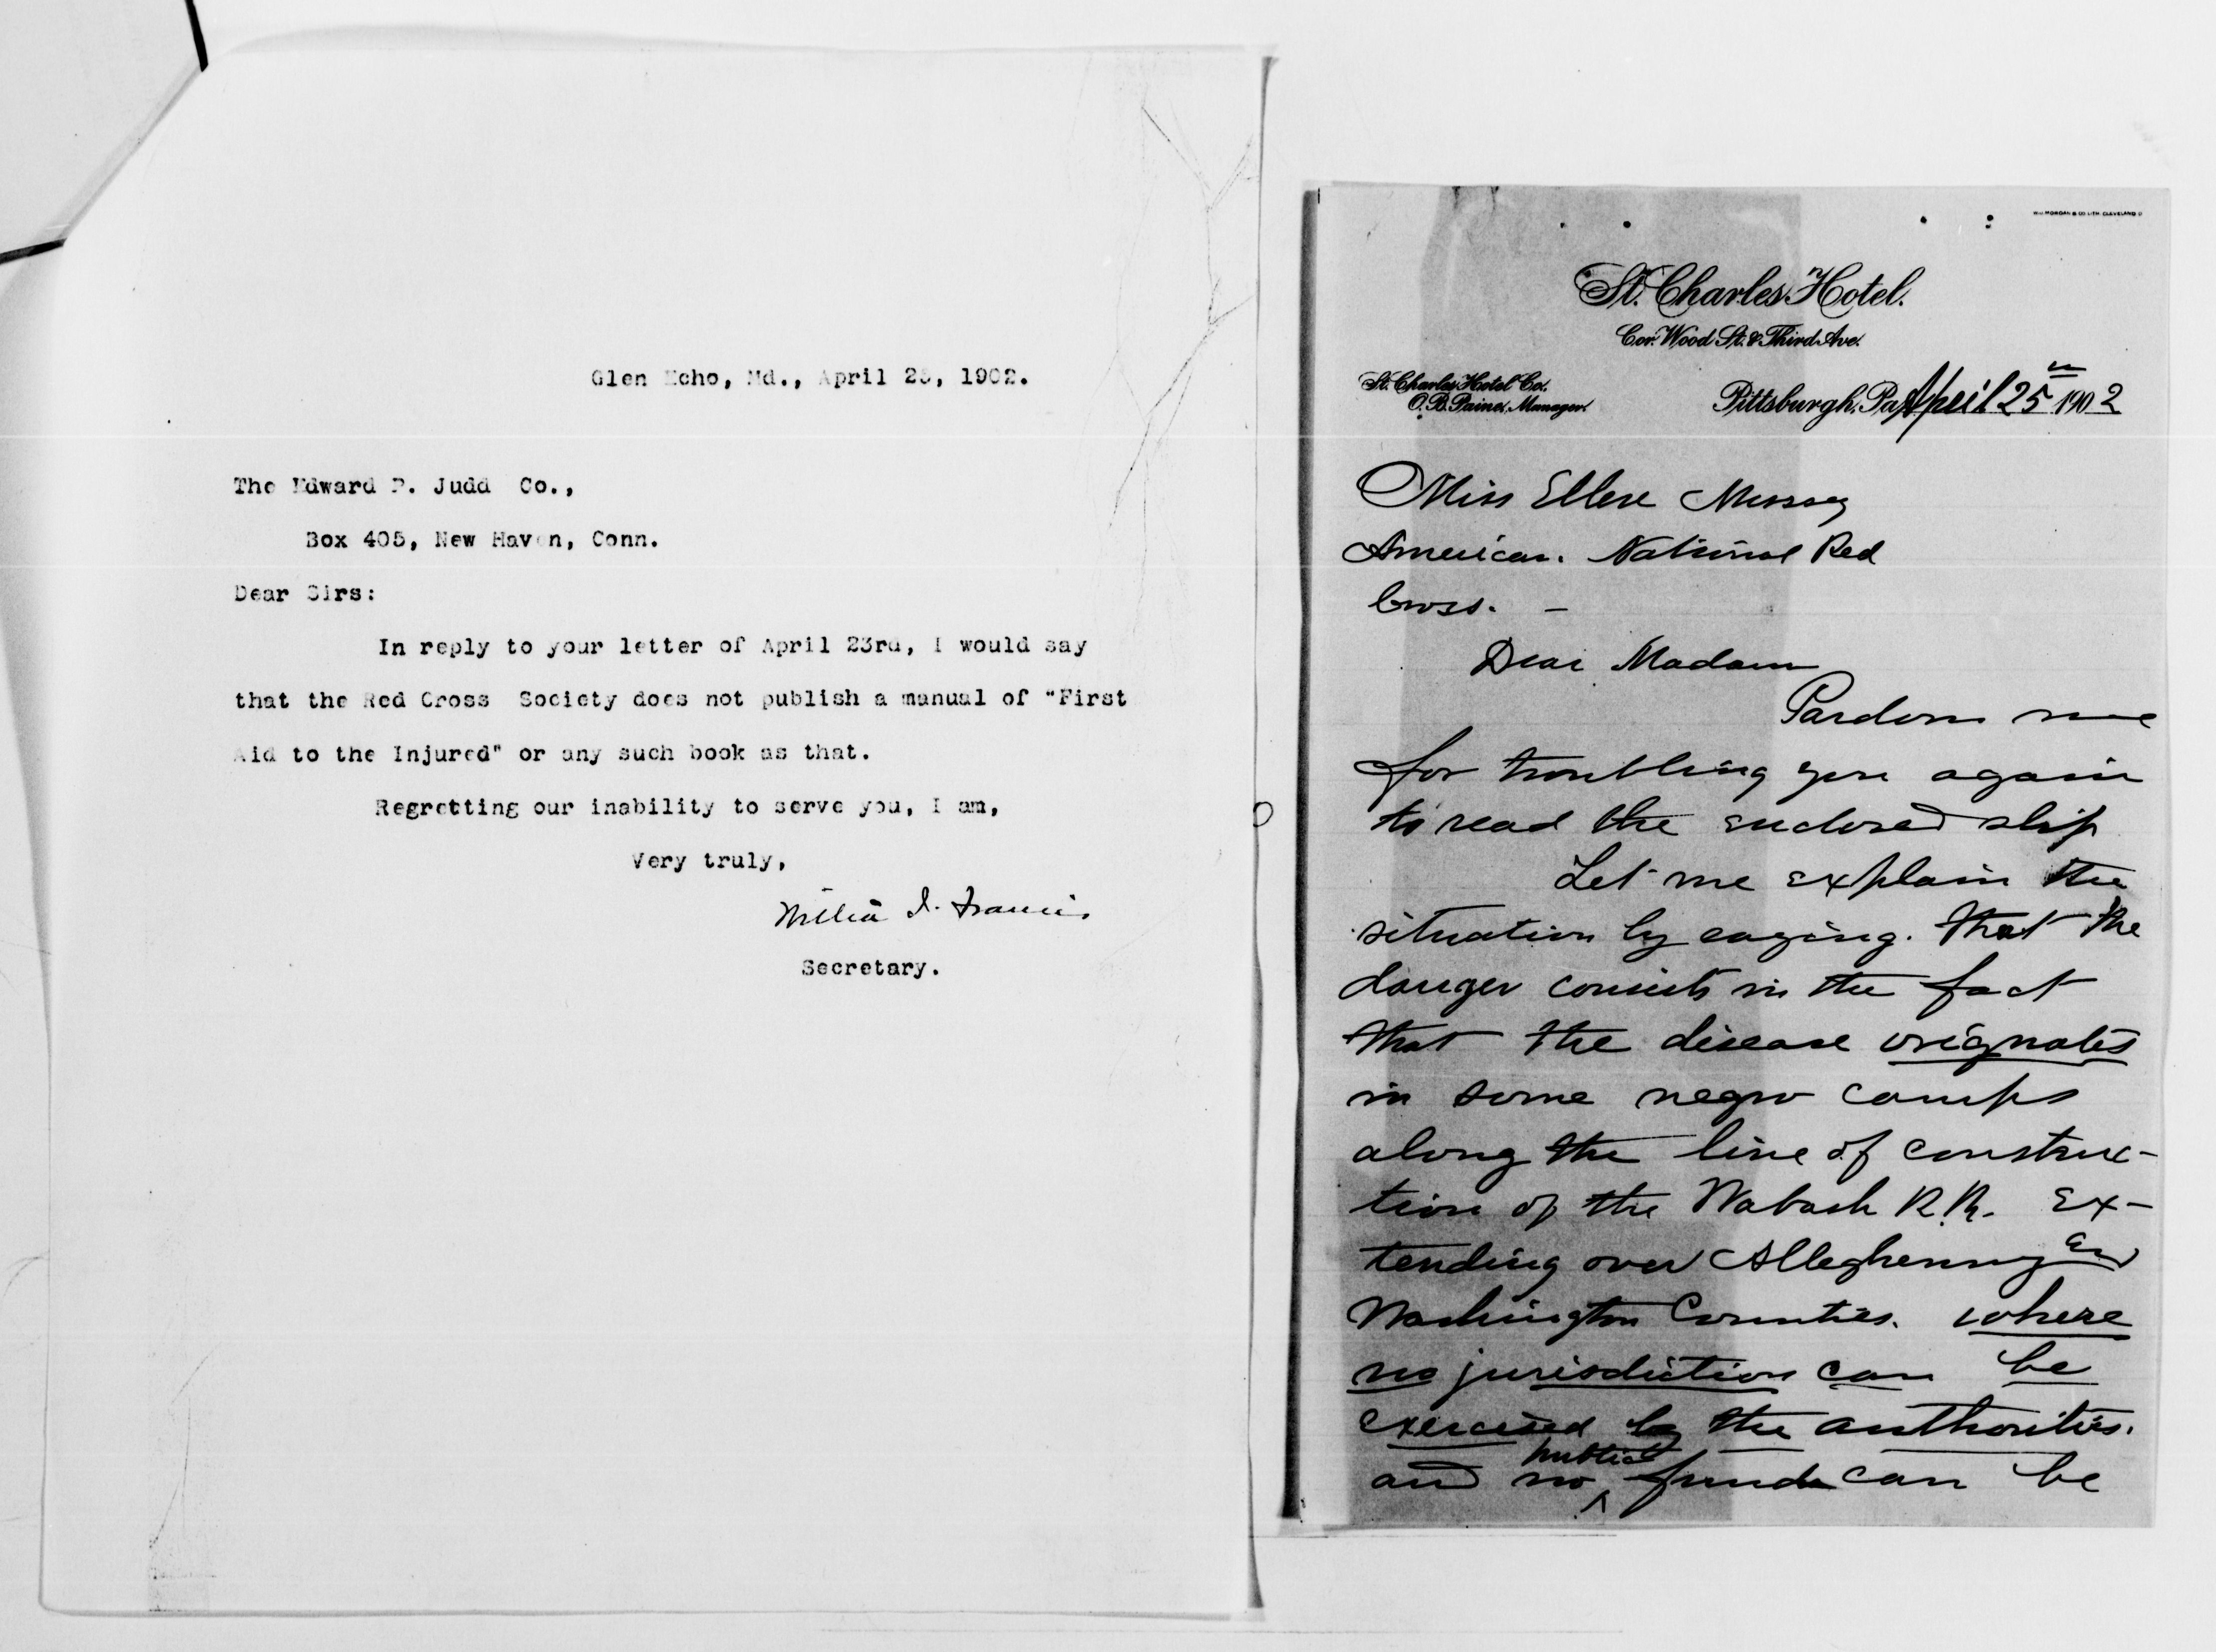 Glen Echo, Md., April 25, 1902.
The Edward P. Judd Co.,
Box 405, New Haven, Conn.
Dear Sirs:
In reply to your letter of April 23rd, I would say
that the Red Cross Society does not publish a manual of "First
Aid to the Injured" or any such book as that.
Regretting our inability to serve you, I am,
Very truly,
Secretary.
WM. MORGAN & CO LITH. CLEVELAND O
St. Charles Hotel.
Cor. Wood St. & Third Ave.
St. Charles Hotel Co.
O. B. Paine, Manager.
Pittsburgh, Pa, April 25th 1902
Miss Ellen Mussey
American. National Red
Cross. -
Dear Madam
Pardon me
for troubling you again
to read the enclosed slip
Let me explain the
situation by saying. that the
danger consists in the fact
that the disease orignates
in some negro camps
along the line of construc-
tion of the Wabash R.R. Ex-
tending over Alleghenny and
Washington Counties. where
no jurisdiction can be
exercised by the authorities.
and no public funds can be